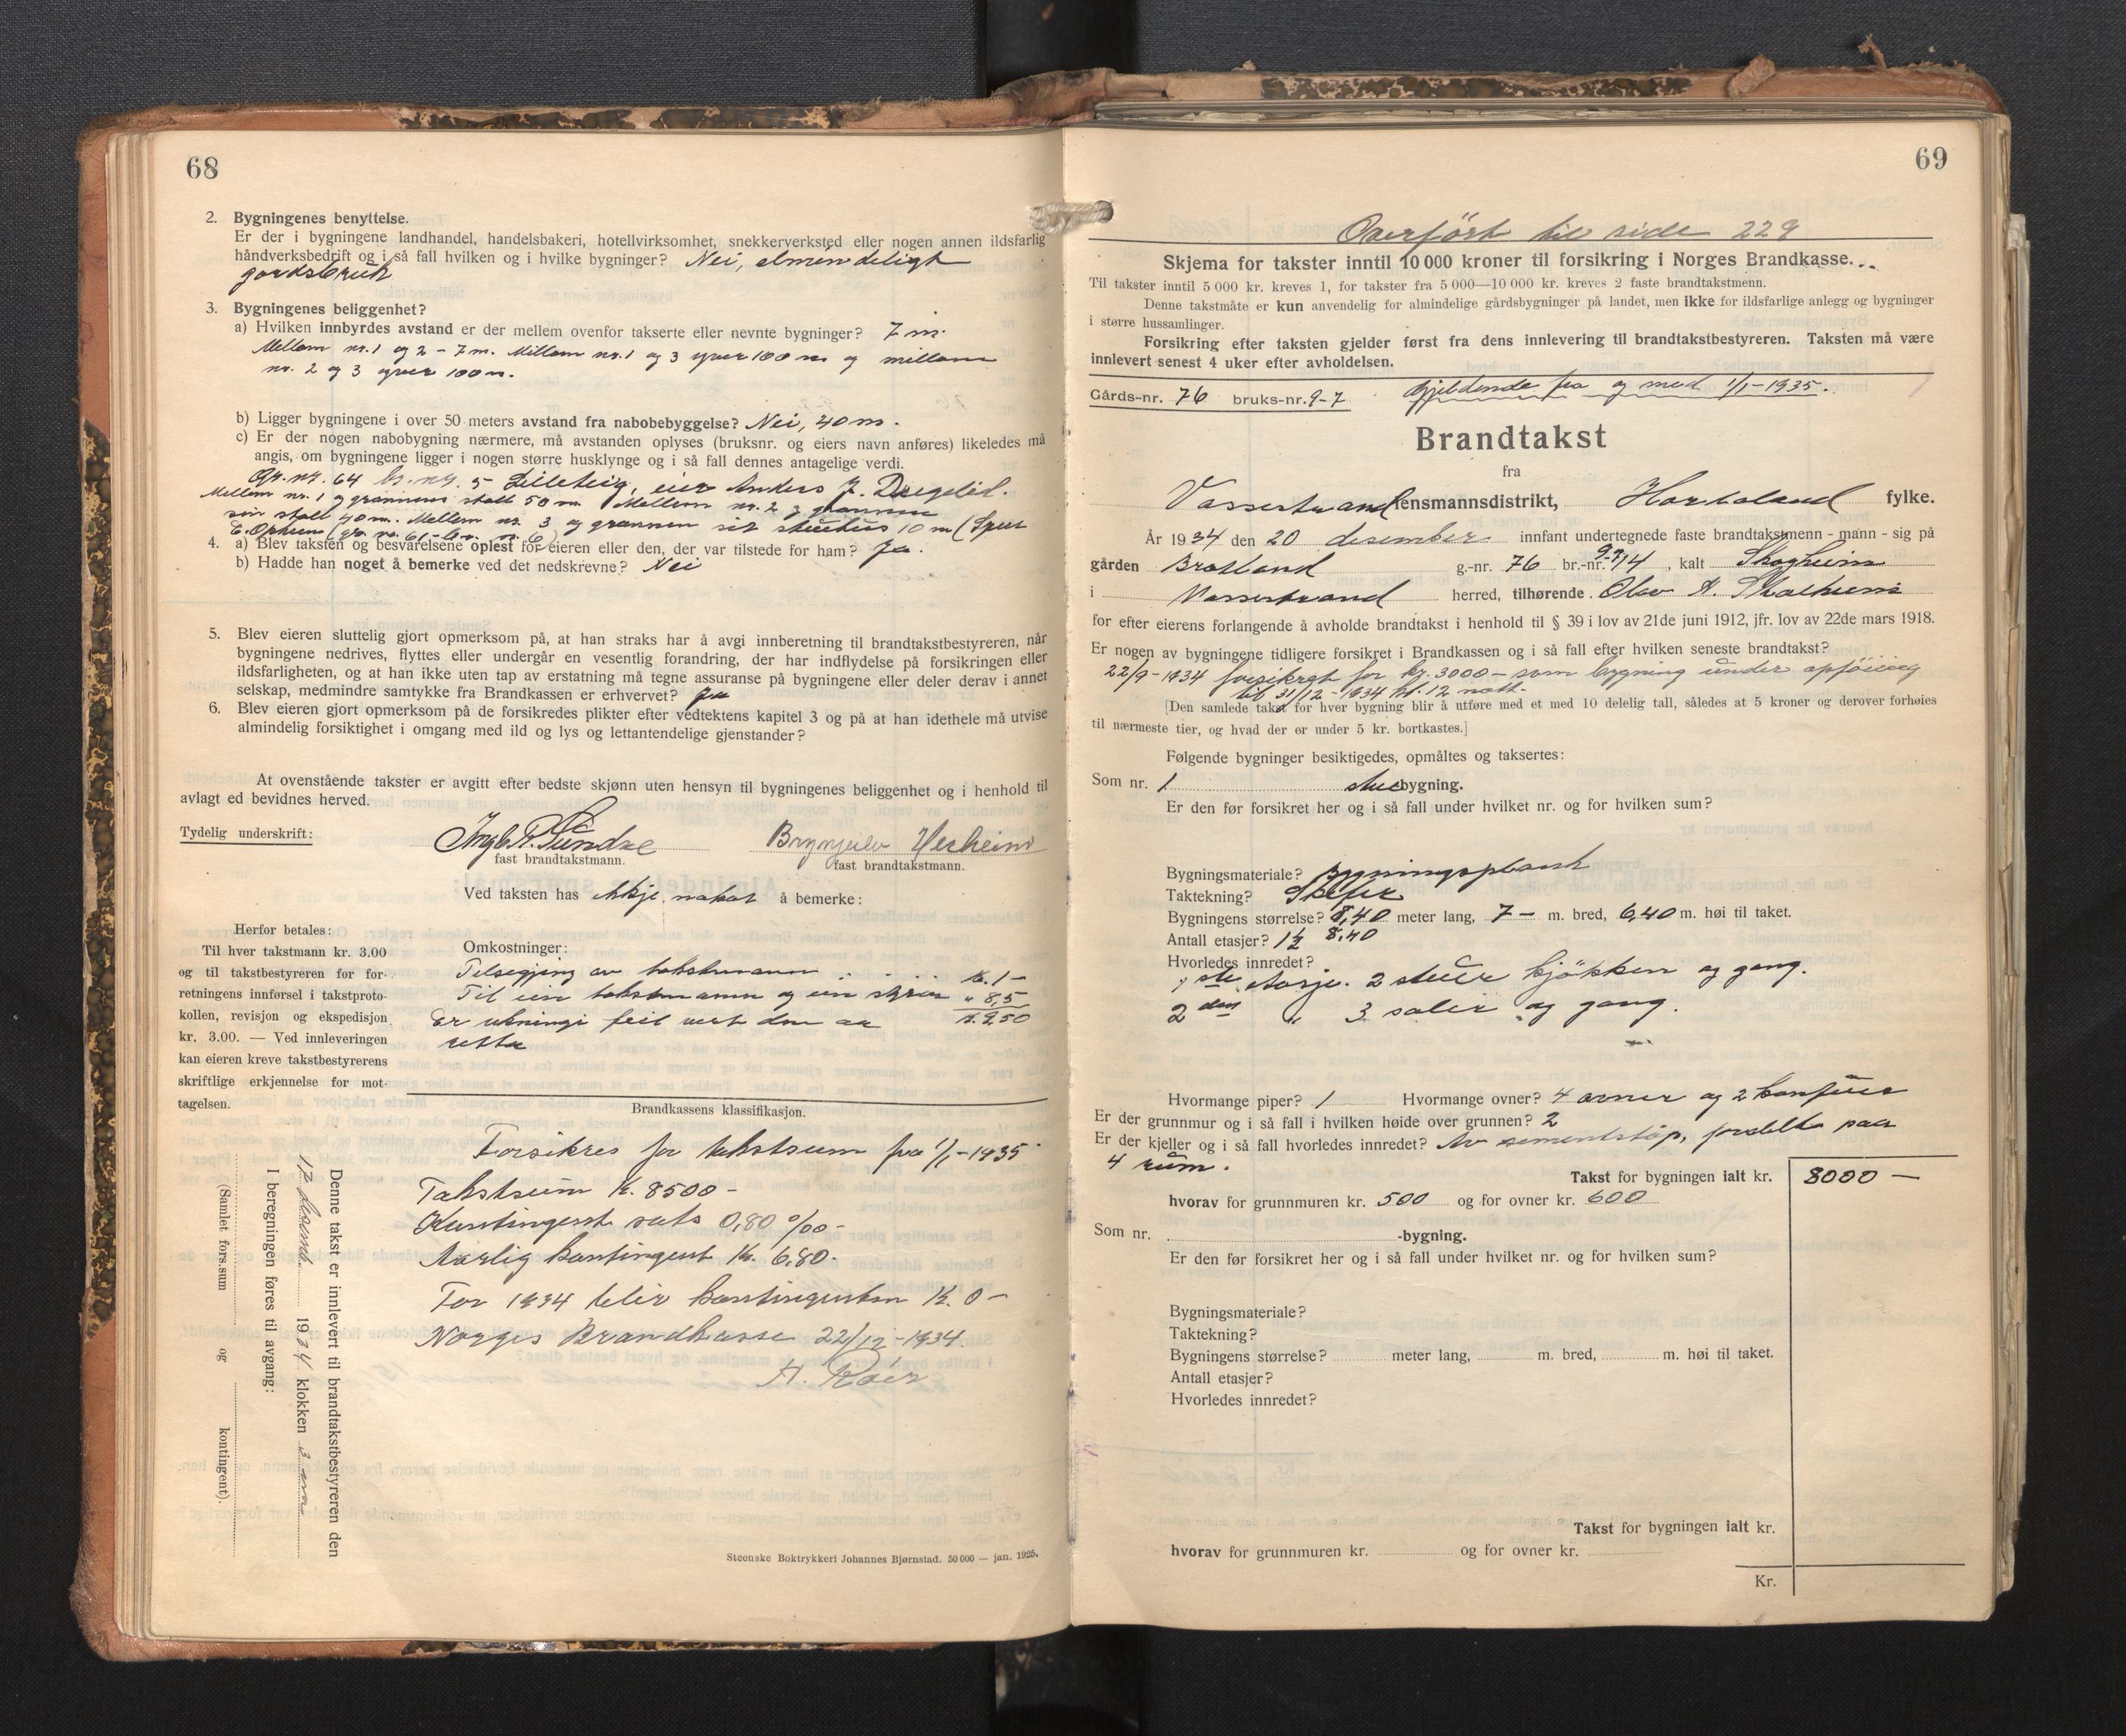 68
2. Bygningenes benyttelse.
Er der i bygningene landhandel, handelsbakeri, hotellvirksomhet, snekkerverksted eller nogen annen ildsfarlig
håndverksbedrift og i så fall hvilken og i hvilke bygninger? Nei, almindeligt
gardsbruk
3. Bygningenes beliggenhet?
a) Hvilken innbyrdes avstand er der mellem ovenfor takserte eller nevnte bygninger? 7 m.
Mellom nr. 1 og 2 - 7 m. Millom nr. 1 og 3 yver 100 m og millom
nr. 2 og 3 yver 100 m.
b) Ligger bygningene i over 50 meters avstand fra nabobebyggelse? Nei, 40 m.
c) Er der nogen nabobygning nærmere, må avstanden oplyses (bruksnr. og eiers navn anføres) likeledes må
angis, om bygningene ligger i nogen større husklynge og i så fall dennes antagelige verdi.
Gr. nr. 64 br. nr. 5 Lilleteig, eier Anders J.
Mellem nr. 1 og grannens stall 50 m. Mellem nr. 2 og grannen
sin stall 40 m. Mellem nr. 3 og grannen sit stuehus 10 m
(gr. nr. 61 - br. nr. 6)
4. a) Blev taksten og besvarelsene oplest for eieren eller den, der var tilstede for ham? Ja.
b) Hadde han noget å bemerke ved det nedskrevne? Nei
5. Blev eieren sluttelig gjort opmerksom på, at han straks har å avgi innberetning til brandtakstbestyreren, når
bygningene nedrives, flyttes eller undergår en vesentlig forandring, der har indflydelse på forsikringen eller
ildsfarligheten, og at han ikke uten tap av erstatning må tegne assuranse på bygningene eller deler derav i annet
selskap, medmindre samtykke fra Brandkassen er erhvervet? Ja
6. Blev eieren gjort opmerksom på de forsikredes plikter efter vedtektens kapitel 3 og på at han idethele må utvise
almindelig forsiktighet i omgang med ild og lys og lettantendelige gjenstander?
At ovenstående takster er avgitt efter bedste skjønn uten hensyn til bygningenes beliggenhet og i henhold til
avlagt ed bevidnes herved.
Tydelig underskrift:
Brynjulv
fast brandtakstmann.
fast brandtakstmann.
Ved taksten has ikkje nokot å bemerke:
Herfor betales:
Til hver takstmann kr. 3.00
og til takstbestyreren for for-
retningens innførsel i takstproto-
kollen, revisjon og ekspedisjon
kr. 3.00. — Ved innleveringen
kan eieren kreve takstbestyrerens
skriftlige erkjennelse for mot-
tagelsen.
Omkostninger:
Tilsegjing av takstmann k. 1 -
Til ein takstmann og ein skriv " 8,5
Er feil vert den aa k. 9,50
retta
Brandkassens klassifikasjon.
Forsikres for takstsum fra 1/1 - 1935
Takstsum K. 8500 -
Kontingent sats 0,80 ‰ -
Aarlig kontingent K. 6,80 -
For 1934 blir kontingenten K. 0 -
Norges Brandkasse 22/12 - 1934.
Denne takst er innlevert til brandtakstbestyreren den
desemb. 1934 klokken 3
I beregningen føres til avgang:
(Samlet fors.sum og kontingent).
Steenske Boktrykkeri Johannes Bjørnstad. 50 000 — jan. 1925.
69
Overført til side 229
Skjema for takster inntil 10 000 kroner til forsikring i Norges Brandkasse.
Til takster inntil 5 000 kr. kreves 1, for takster fra 5 000—10 000 kr. kreves 2 faste brandtakstmenn.
Denne takstmåte er kun anvendelig for almindelige gårdsbygninger på landet, men ikke for ildsfarlige anlegg og bygninger
i større hussamlinger.
Forsikring efter taksten gjelder først fra dens innlevering til brandtakstbestyreren. Taksten må være
innlevert senest 4 uker efter avholdelsen.
Gårds-nr. 76 bruks-nr. 9-7 Gjeldende fra og med 1/1 - 1935.
Brandtakst
fra
Vossestrand lensmannsdistrikt, Hordaland fylke.
År 1934 den 20 desember innfant undertegnede faste brandtakstmenn - mann - sig på
gården Brekland g.-nr. 76 br.-nr. 9-7/14, kalt Skogheim
i Vossestrand herred, tilhørende Olav A. Stalheim
for efter eierens forlangende å avholde brandtakst i henhold til § 39 i lov av 21de juni 1912, jfr. lov av 22de mars 1918.
Er nogen av bygningene tidligere forsikret i Brandkassen og i så fall efter hvilken seneste brandtakst?
22/9 - 1934 forsikret for kr. 3000 - som bygning under opføring
til 31/12 - 1934 kl. 12 natt.
[Den samlede takst for hver bygning blir å utføre med et med 10 delelig tall, således at 5 kroner og derover forhøies
til nærmeste tier, og hvad der er under 5 kr. bortkastes.]
Følgende bygninger besiktigedes, opmåltes og taksertes:
Som nr. 1 stuebygning.
Er den før forsikret her og i så fall under hvilket nr. og for hvilken sum?
Bygningsmateriale? Bygningsplank
Taktekning? Skifer
Bygningens størrelse? 8,40 meter lang, 7 - m. bred, 6,40 m. høi til taket.
Antall etasjer? 1½ 8,40
Hvorledes innredet?
1ste etasje. 2 stuer kjøkken og gang.
2den " 3 saler og gang.
Hvormange piper? 1 Hvormange ovner? 4 ovner og 2 komfyrer
Er der grunnmur og i så fall i hvilken høide over grunnen? 2
Er der kjeller og i så fall hvorledes innredet? Av sementstøp, fordelt paa
4 rum.
Takst for bygningen ialt kr. 8000 —
hvorav for grunnmuren kr. 500 og for ovner kr. 600
Som nr. -bygning.
Er den før forsikret her og i så fall under hvilket nr. og for hvilken sum?
Bygningsmateriale?
Taktekning?
Bygningens størrelse? meter lang, m. bred, m. høi til taket.
Antall etasjer?
Hvorledes innredet?
Takst for bygningen ialt kr.
hvorav for grunnmuren kr. og for ovner kr.
Kr.